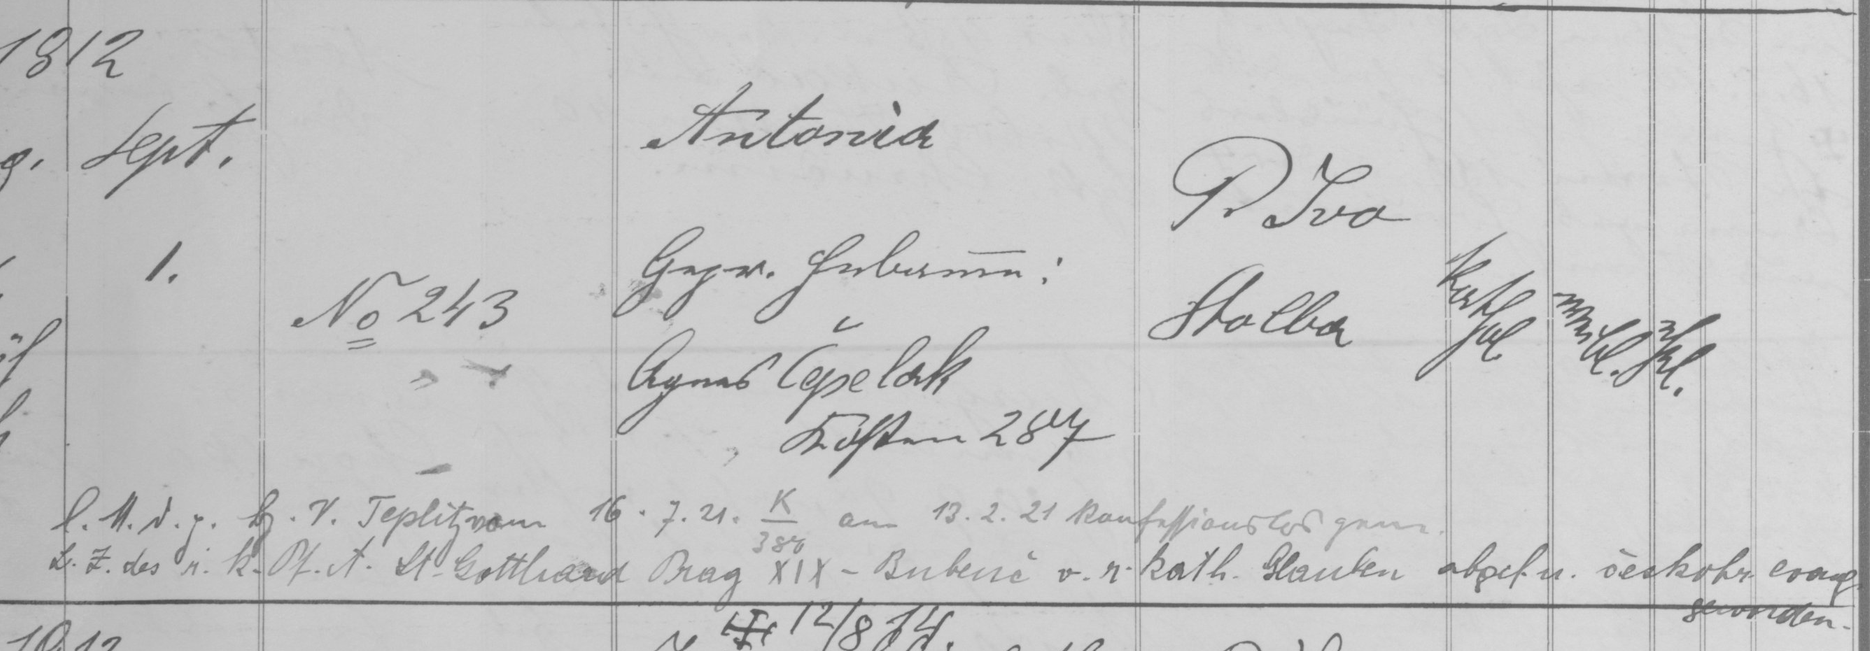 1912
Sept.
1.
No 243
Antonia
Gepr. Hebamme:
Agnes Čepelak
Kosten 287
P Ivo
Stolba
Kathol weibl. ehel.
l. M. d. p. bz. V. Teplitz vom 16. 7. 21. K/384 am 13. 2. 21 konfessionslos gew.
L. Z. des r. k. Pf. A. St. Gotthard Prag XIX - Bubenč v. r. kath. Glauben abgef. u. českobr. evang.
geworden.
12/8 14.
1912